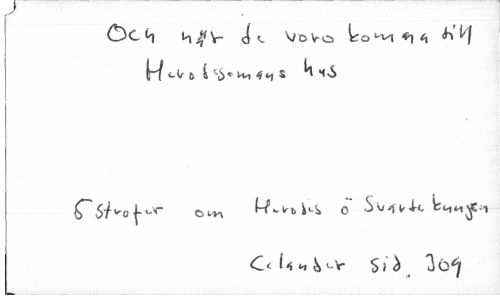 Och när de voro komna till
Herodesemans hus
5 strofer om Herodes o Svarte kungen
Celander sid. 309